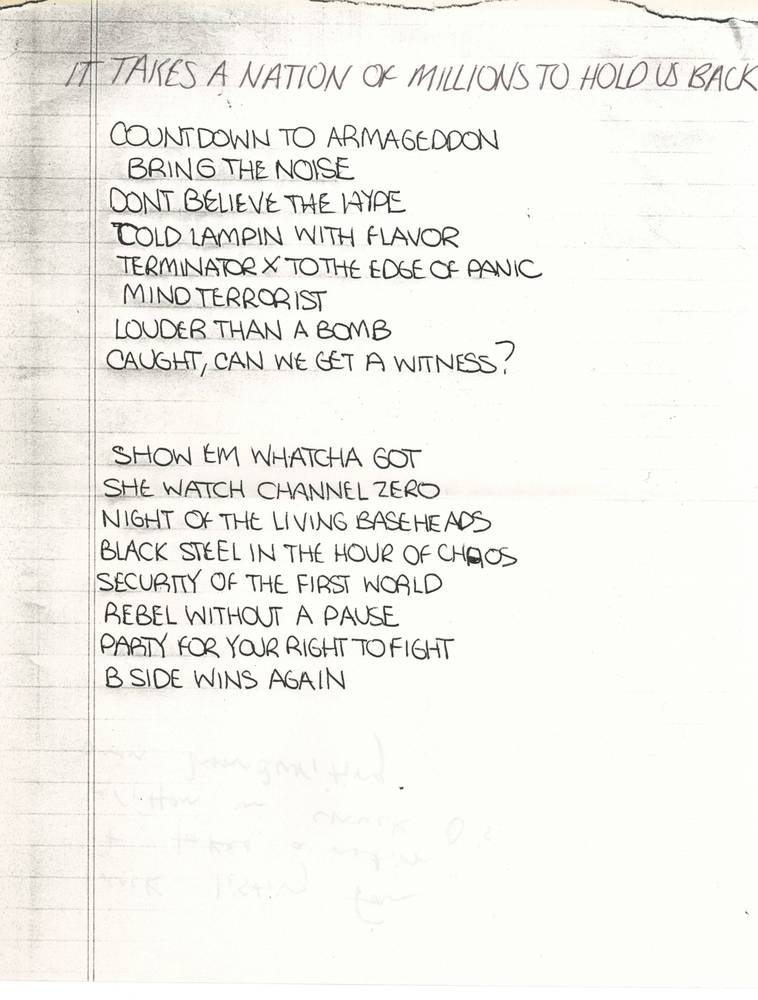 IT TAKES A NATION OF MILLIONS TO HOLD US BACK
COUNTDOWN TO ARMAGEDDON
BRING THE NOISE
DONT BELIEVE THE HYPE
COLD LAMPIN WITH FLAVOR
TERMINATOR X TO THE EDGE OF PANIC
MIND TERRORIST
LOUDER THAN A BOMB
CAUGHT, CAN WE GET A WITNESS?
SHOW EM WHATCHA GOT
SHE WATCH CHANNEL ZERO
NIGHT OF THE LIVING BASEHEADS
BLACK STEEL IN THE HOUR OF CHAOS
SECURITY OF THE FIRST WORLD
REBEL WITHOUT A PAUSE
PARTY FOR YOUR RIGHT TO FIGHT
B SIDE WINS AGAIN